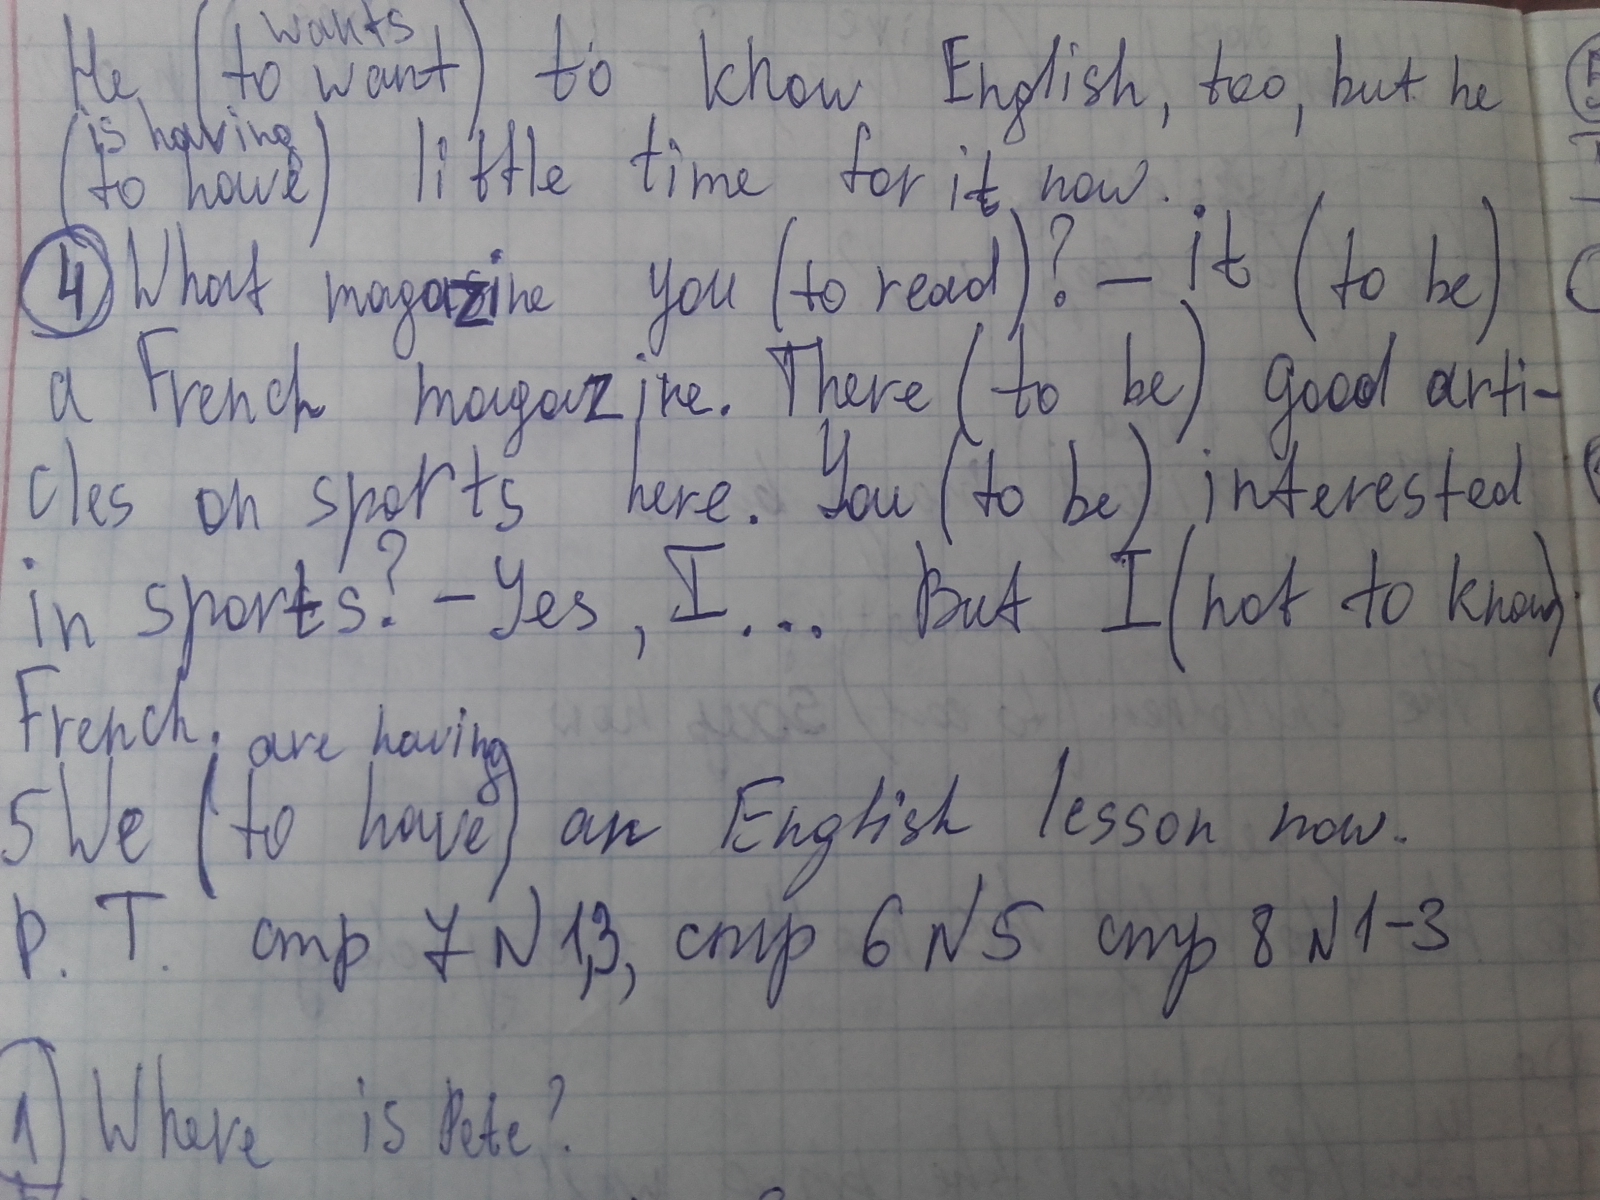 wants
He (to want) to know English, too, but he
is having
(to have) little time for it now.
4 What magazine you (to read)? – it (to be)
a French magazine. There (to be) good arti-
cles on sports here. You (to be) interested
in sports? – Yes, I... But I (not to know)
French.
are having
5 We (to have) an English lesson now.
P. T. стр 7 N 1,3, стр 6 N 5 стр 8 N 1-3
1) Where is Pete?